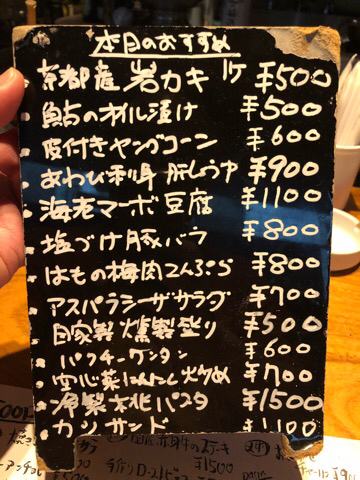 本日のおすすめ
京都産岩カキ 1ケ ¥500
鮎のオイル漬け ¥500
皮付きヤングコーン ¥600
あわび刺身 肝しょうゆ ¥900
海老マーボ豆腐 ¥1100
塩づけ豚バラ ¥800
はもの梅肉てんぷら ¥800
アスパラシーザサラダ ¥700
自家製燻製盛り ¥500
パクチーワンタン ¥600
空心菜にんにく炒め ¥700
冷製桃パスタ ¥1500
カツサンド ¥1100
¥1500